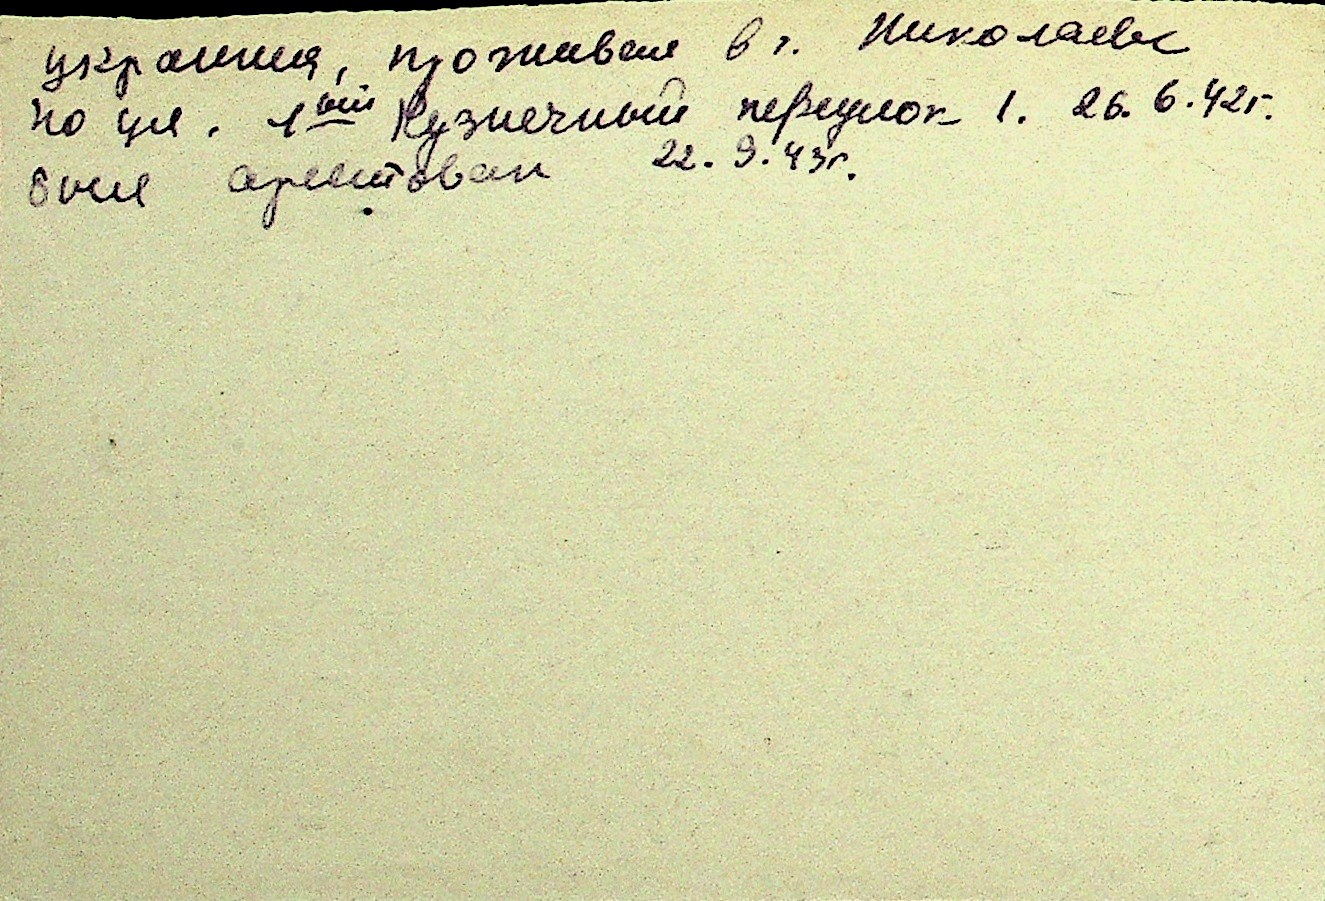 украинец, проживал в г. Николаеве
по ул. 1ый Кузнечный переулок 1. 26.6.42г.
был арестован 22.9.43г.